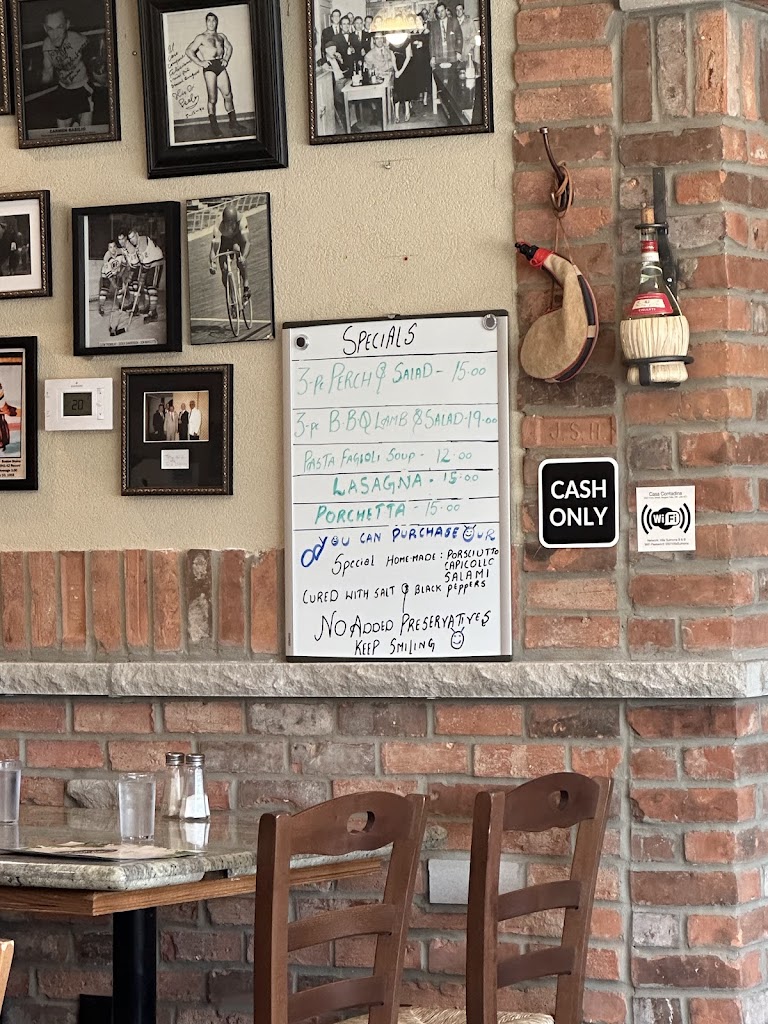 SPECIALS
3-PC PERCH & SALAD - 15.00
3-PC B.B.Q LAMB & SALAD-19.00
PASTA FAGIOLI SOUP - 12.00
LASAGNA - 15.00
PORCHETTA - 15.00
YOU CAN PURCHASE OUR
Special HOME-MADE : PORSCIUTTO
CAPICOLLC
SALAMI
CURED WITH SALT & BLACK PEPPERS
NO ADDED PRESERVATIVES
KEEP SMILING
J.S.H
CASH
ONLY
Casa Corradina
WiFi
20